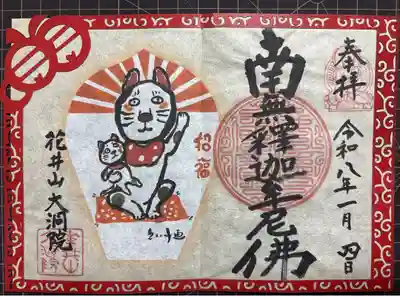 奉拝
令和八年一月四日
南無釋迦牟尼佛
招福
花井山大洞院